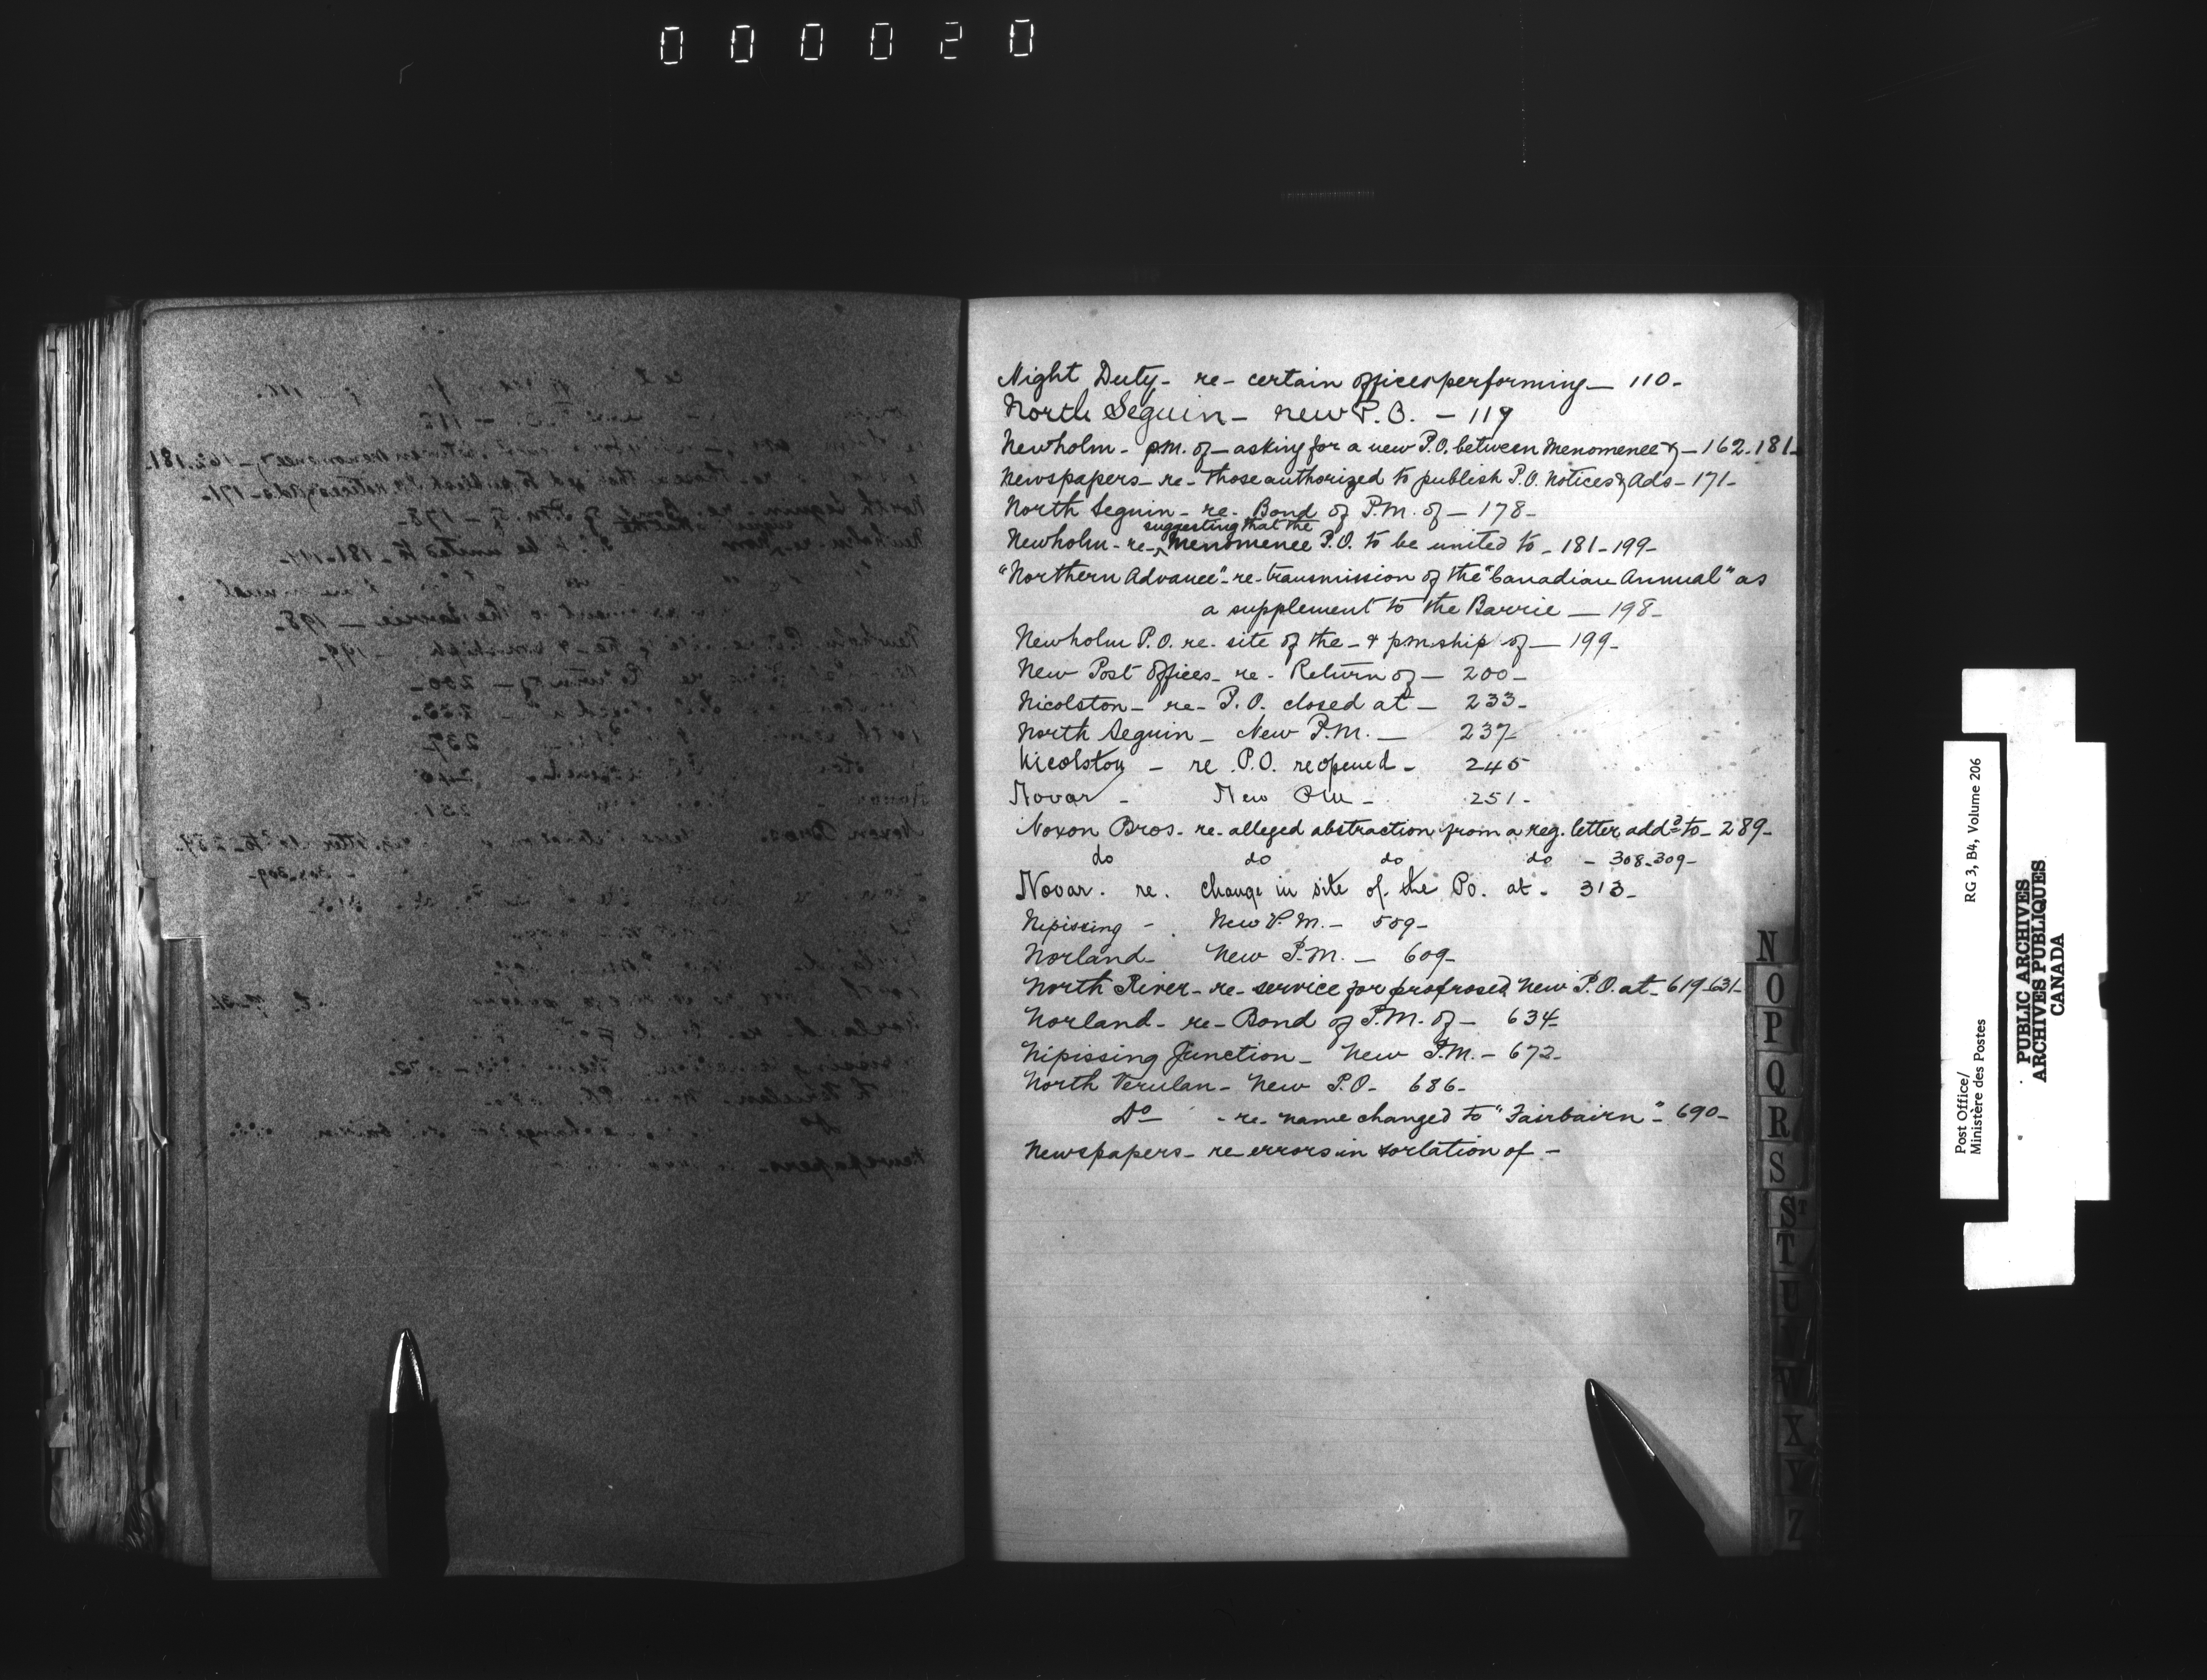 000020
Night Duty - re - certain offices performing - 110 -
North Seguin - new P.O. - 119
Newholm - p.m. of - asking for a new P.O. between Menomenee & - 162.181 -
Newspapers - re - those authorized to publish P.O. Notices & Ads - 171 -
North Seguin - re - Bond of P.M. of - 178 -
suggesting that the
Newholm - re - ^ Menomenee P.O. to be united to - 181 - 199 -
"Northern Advance" - re - transmission of the "Canadian Annual" as
a supplement to the Barrie - 198 -
Newholm P.O. re. site of the - & pmship of - 199 -
New Post Offices - re - Return of - 200 -
Nicolston - re - P.O. closed at - 233 -
North Seguin - New P.M. - 237
Nicolston - re P.O. reopened - 245
Novar - New PM - 251 -
Noxon Bros - re - alleged abstraction from a reg. letter addd to - 289 -
do do do do - 308 - 309 -
Novar. re. change in site of the Po. at - 313 -
Nipissing - New P.M. - 509 -
Norland - New P.M. - 609 -
North River - re - service for proposed New P.O. at - 619 - 631 -
Norland - re - Bond of P.M. of - 634 -
Nipissing Junction - New P.M. - 672 -
North Verulan - New P.O. - 686 -
Do - re - name changed to "Fairbairn" - 690 -
Newspapers - re errors in sortation of -
N
O
P
Q
R
S
ST
T
U
V
X
Y
Z
Post Office/
Ministère des Postes
RG 3, B4, Volume 206
PUBLIC ARCHIVES
ARCHIVES PUBLIQUES
CANADA